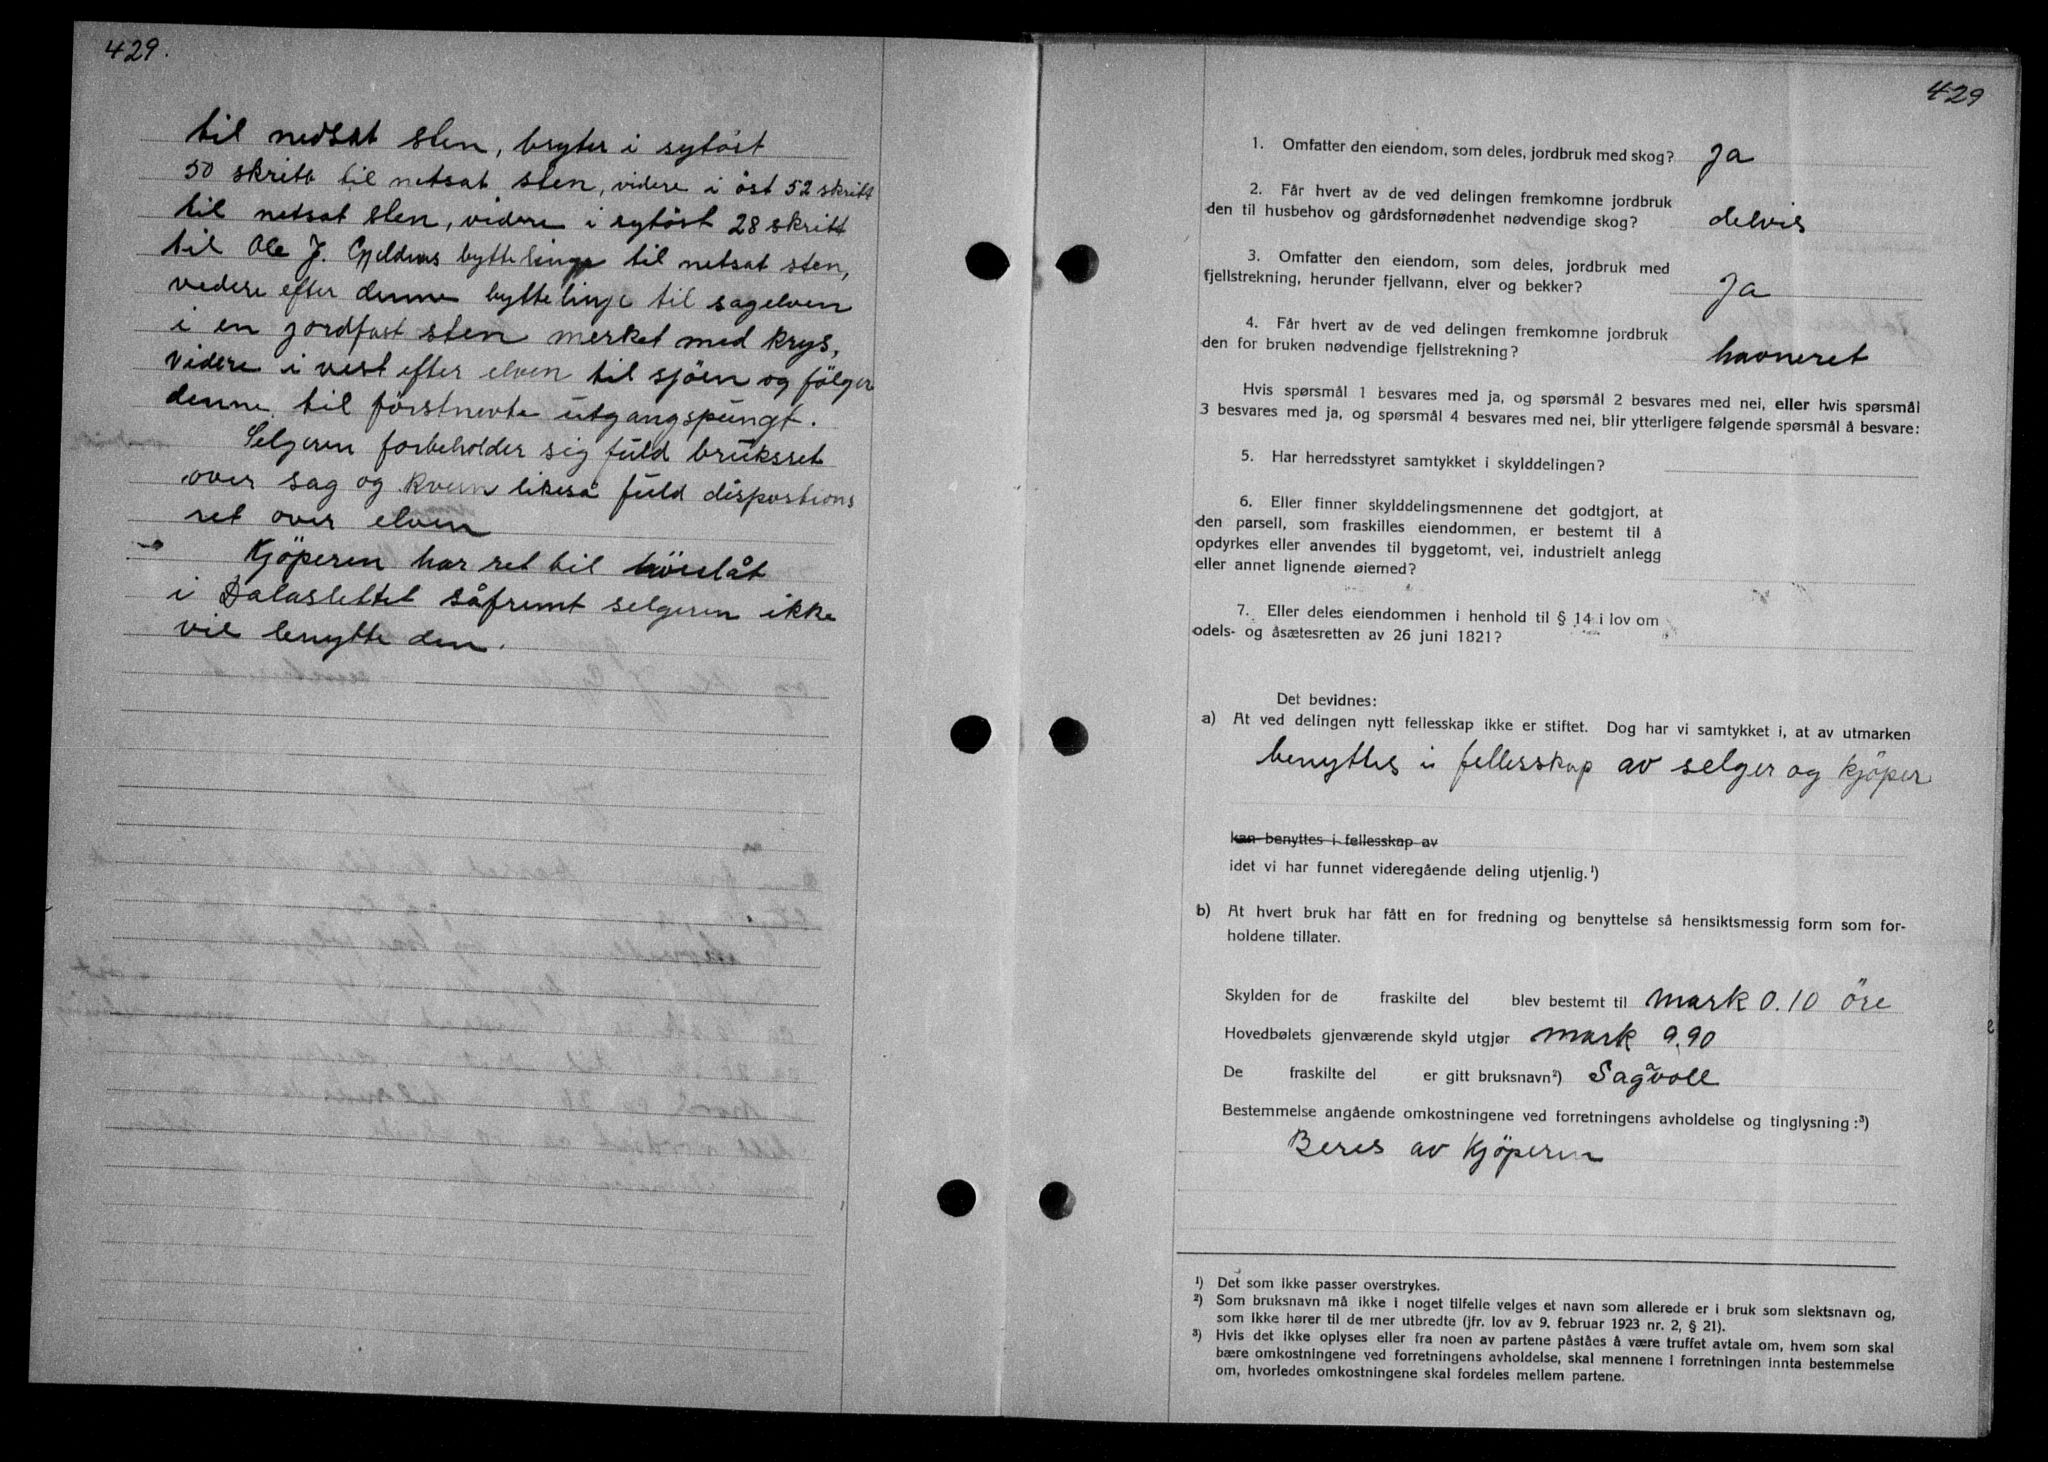 429.
til nedsat sten, bryter i sytöst
50 skritt til netsat sten, videre i öst 52 skritt
til netsat sten, videre i sytöst 28 skritt
til Ole J. Gjeldnes byttelinge til netsat sten,
videre efter denne byttelinje til sagelven
i en jordfast sten merket med krys,
videre i vest efter elven til sjöen og fölger
denne til förstnevte utgangspungt.
Selgeren forbeholder sig fuld bruksret
over sag og kvern likeså fuld dispostions
ret over elven
Kjöperen har ret til höislåt
i Dalaslettet såfremt selgeren ikke
vil benytte den.
429
1. Omfatter den eiendom, som deles, jordbruk med skog? Ja
2. Får hvert av de ved delingen fremkomne jordbruk
den til husbehov og gårdsfornødenhet nødvendige skog? delvis
3. Omfatter den eiendom, som deles, jordbruk med
fjellstrekning, herunder fjellvann, elver og bekker? Ja
4. Får hvert av de ved delingen fremkomne jordbruk
den for bruken nødvendige fjellstrekning? havneret
Hvis spørsmål 1 besvares med ja, og spørsmål 2 besvares med nei, eller hvis spørsmål
3 besvares med ja, og spørsmål 4 besvares med nei, blir ytterligere følgende spørsmål å besvare:
5. Har herredsstyret samtykket i skylddelingen?
6. Eller finner skylddelingsmennene det godtgjort, at
den parsell, som fraskilles eiendommen, er bestemt til å
opdyrkes eller anvendes til byggetomt, vei, industrielt anlegg
eller annet lignende øiemed?
7. Eller deles eiendommen i henhold til § 14 i lov om
odels- og åsætesretten av 26 juni 1821?
Det bevidnes:
a) At ved delingen nytt fellesskap ikke er stiftet. Dog har vi samtykket i, at av utmarken
benyttes i fellesskap av selger og kjöper
kan benyttes i fellesskap av
idet vi har funnet videregående deling utjenlig.¹)
b) At hvert bruk har fått en for fredning og benyttelse så hensiktsmessig form som for-
holdene tillater.
Skylden for de fraskilte del blev bestemt til mark 0.10 öre
Hovedbølets gjenværende skyld utgjør mark 9.90
De fraskilte del er gitt bruksnavn²) Sagvoll
Bestemmelse angående omkostningene ved forretningens avholdelse og tinglysning:³)
Beres av Kjöperen
¹) Det som ikke passer overstrykes.
²) Som bruksnavn må ikke i noget tilfelle velges et navn som allerede er i bruk som slektsnavn og,
som ikke hører til de mer utbredte (jfr. lov av 9. februar 1923 nr. 2, § 21).
³) Hvis det ikke oplyses eller fra noen av partene påståes å være truffet avtale om, hvem som skal
bære omkostningene ved forretningens avholdelse, skal mennene i forretningen innta bestemmelse
om, hvorledes omkostningene skal fordeles mellem partene.